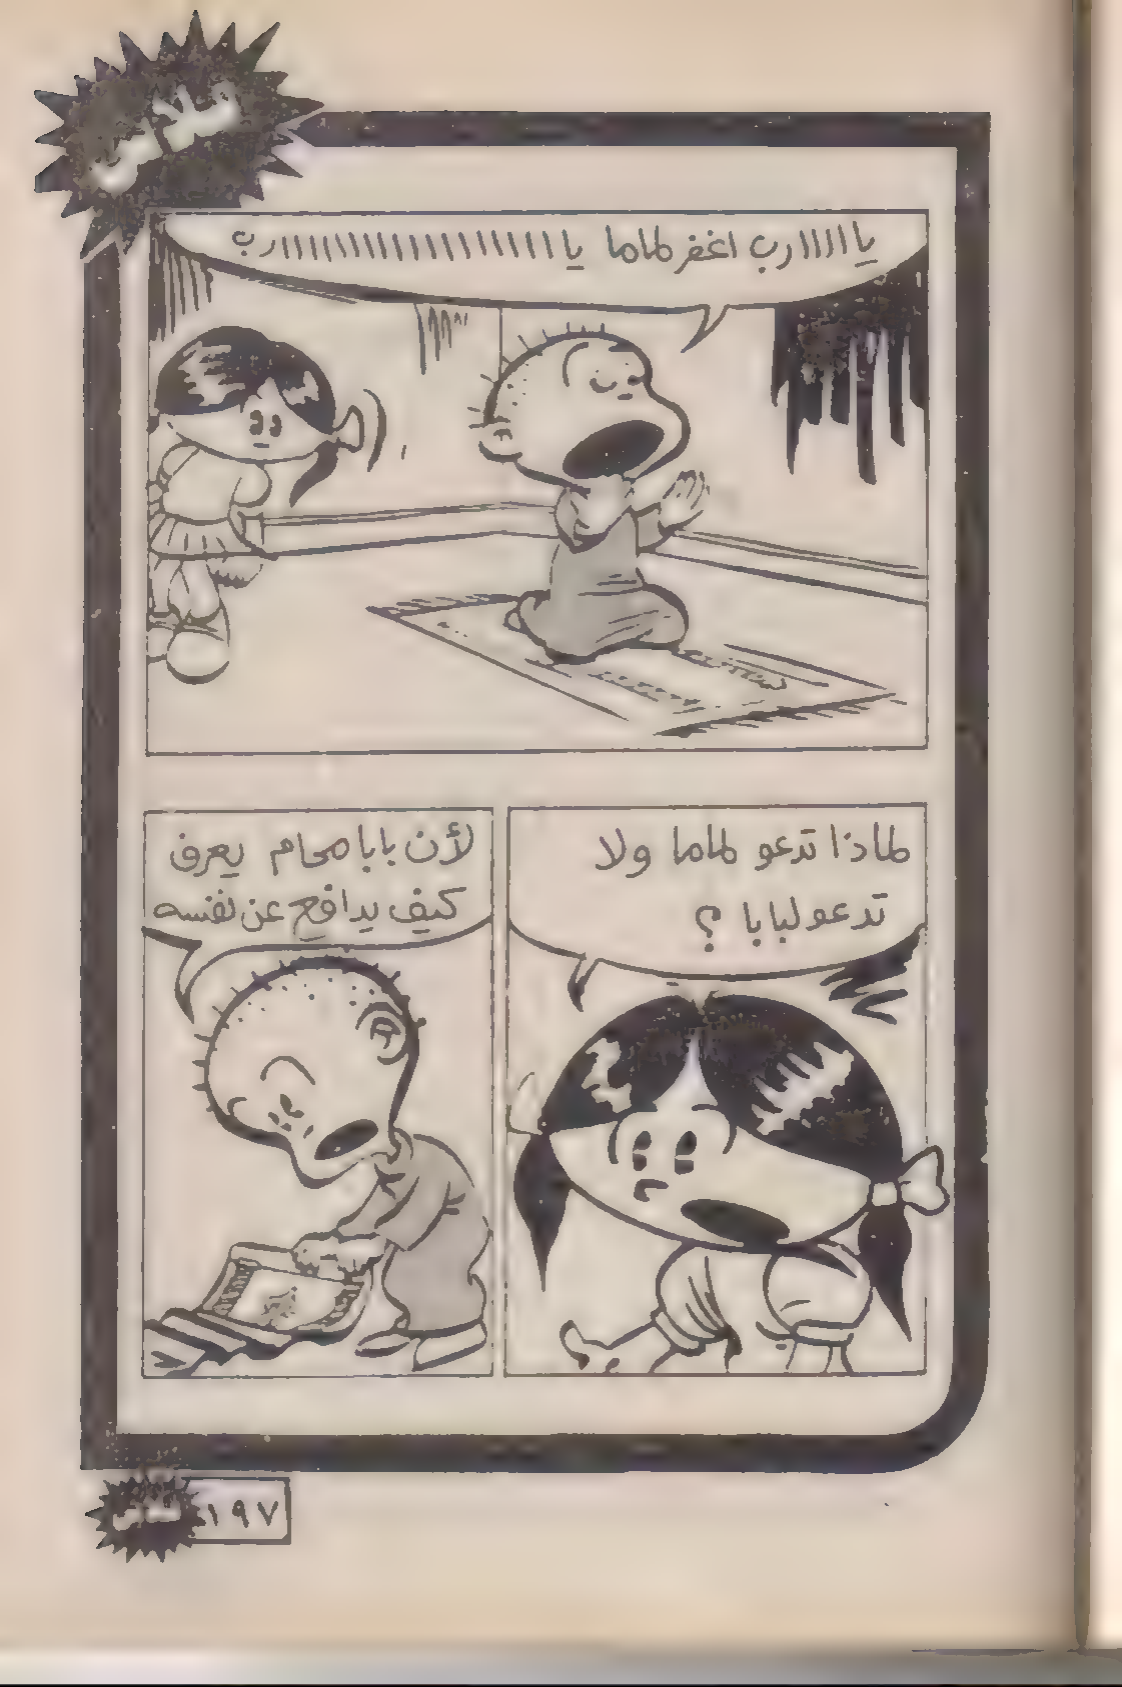 يااااارب اغفر لماما يااااااااااااااااااااارب
لماذا تدعو لماما ولا
تدعو لبابا ؟
لأن بابا محام يعرف
كيف يدافع عن نفسه
١٩٧